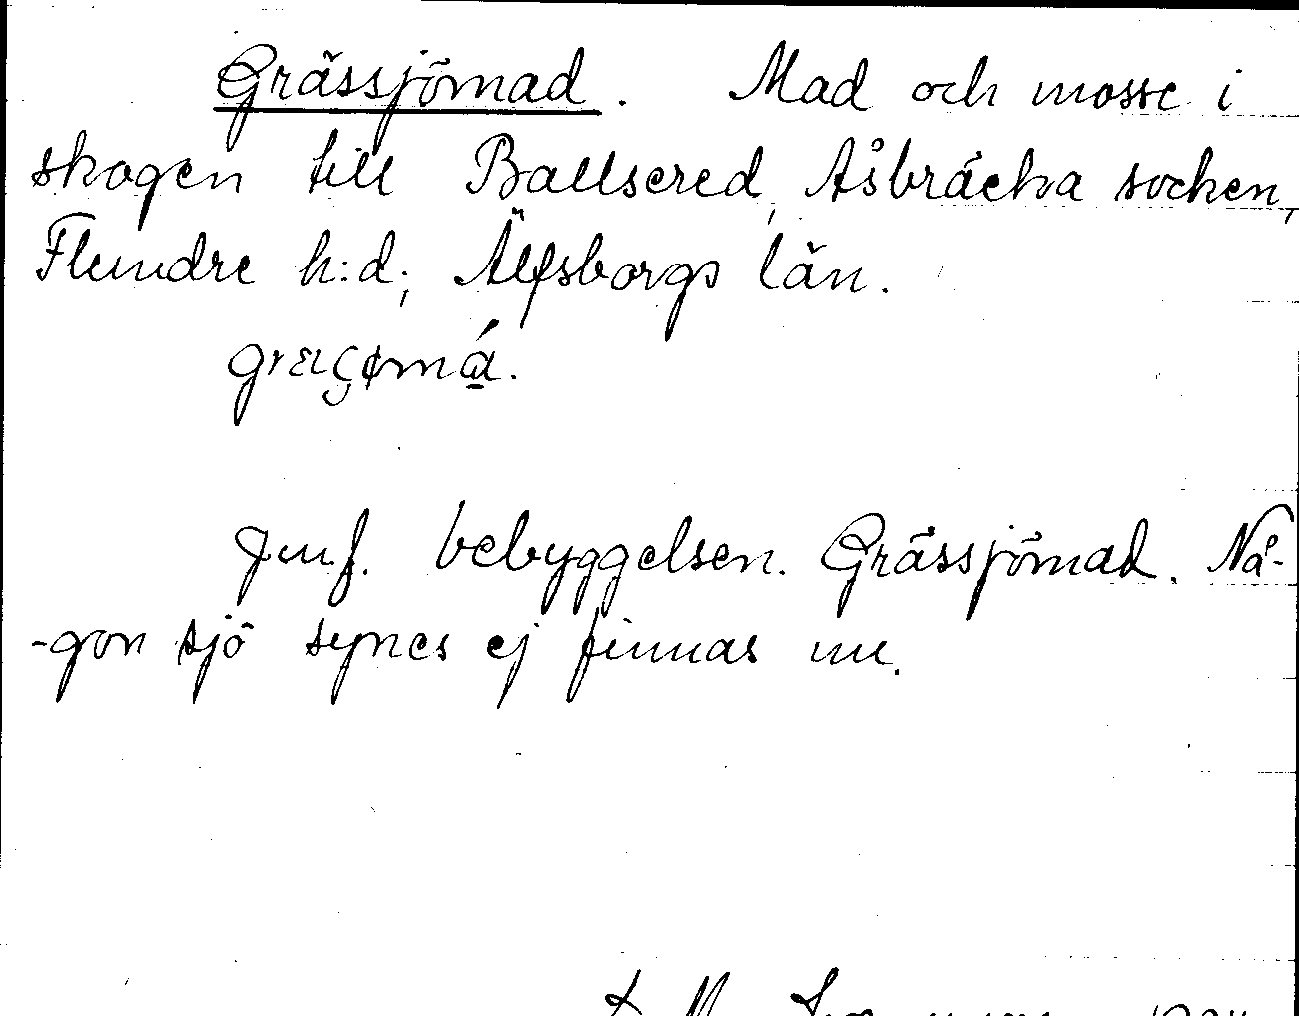 Grässjömad. Mad och mosse i
skogen till Ballsered, Åsbräcka socken,
Flundre h:d; Älfsborgs län.
Jmf. bebyggelsen Grässjömad. Nå-
-gon sjö synes ej finnas nu.